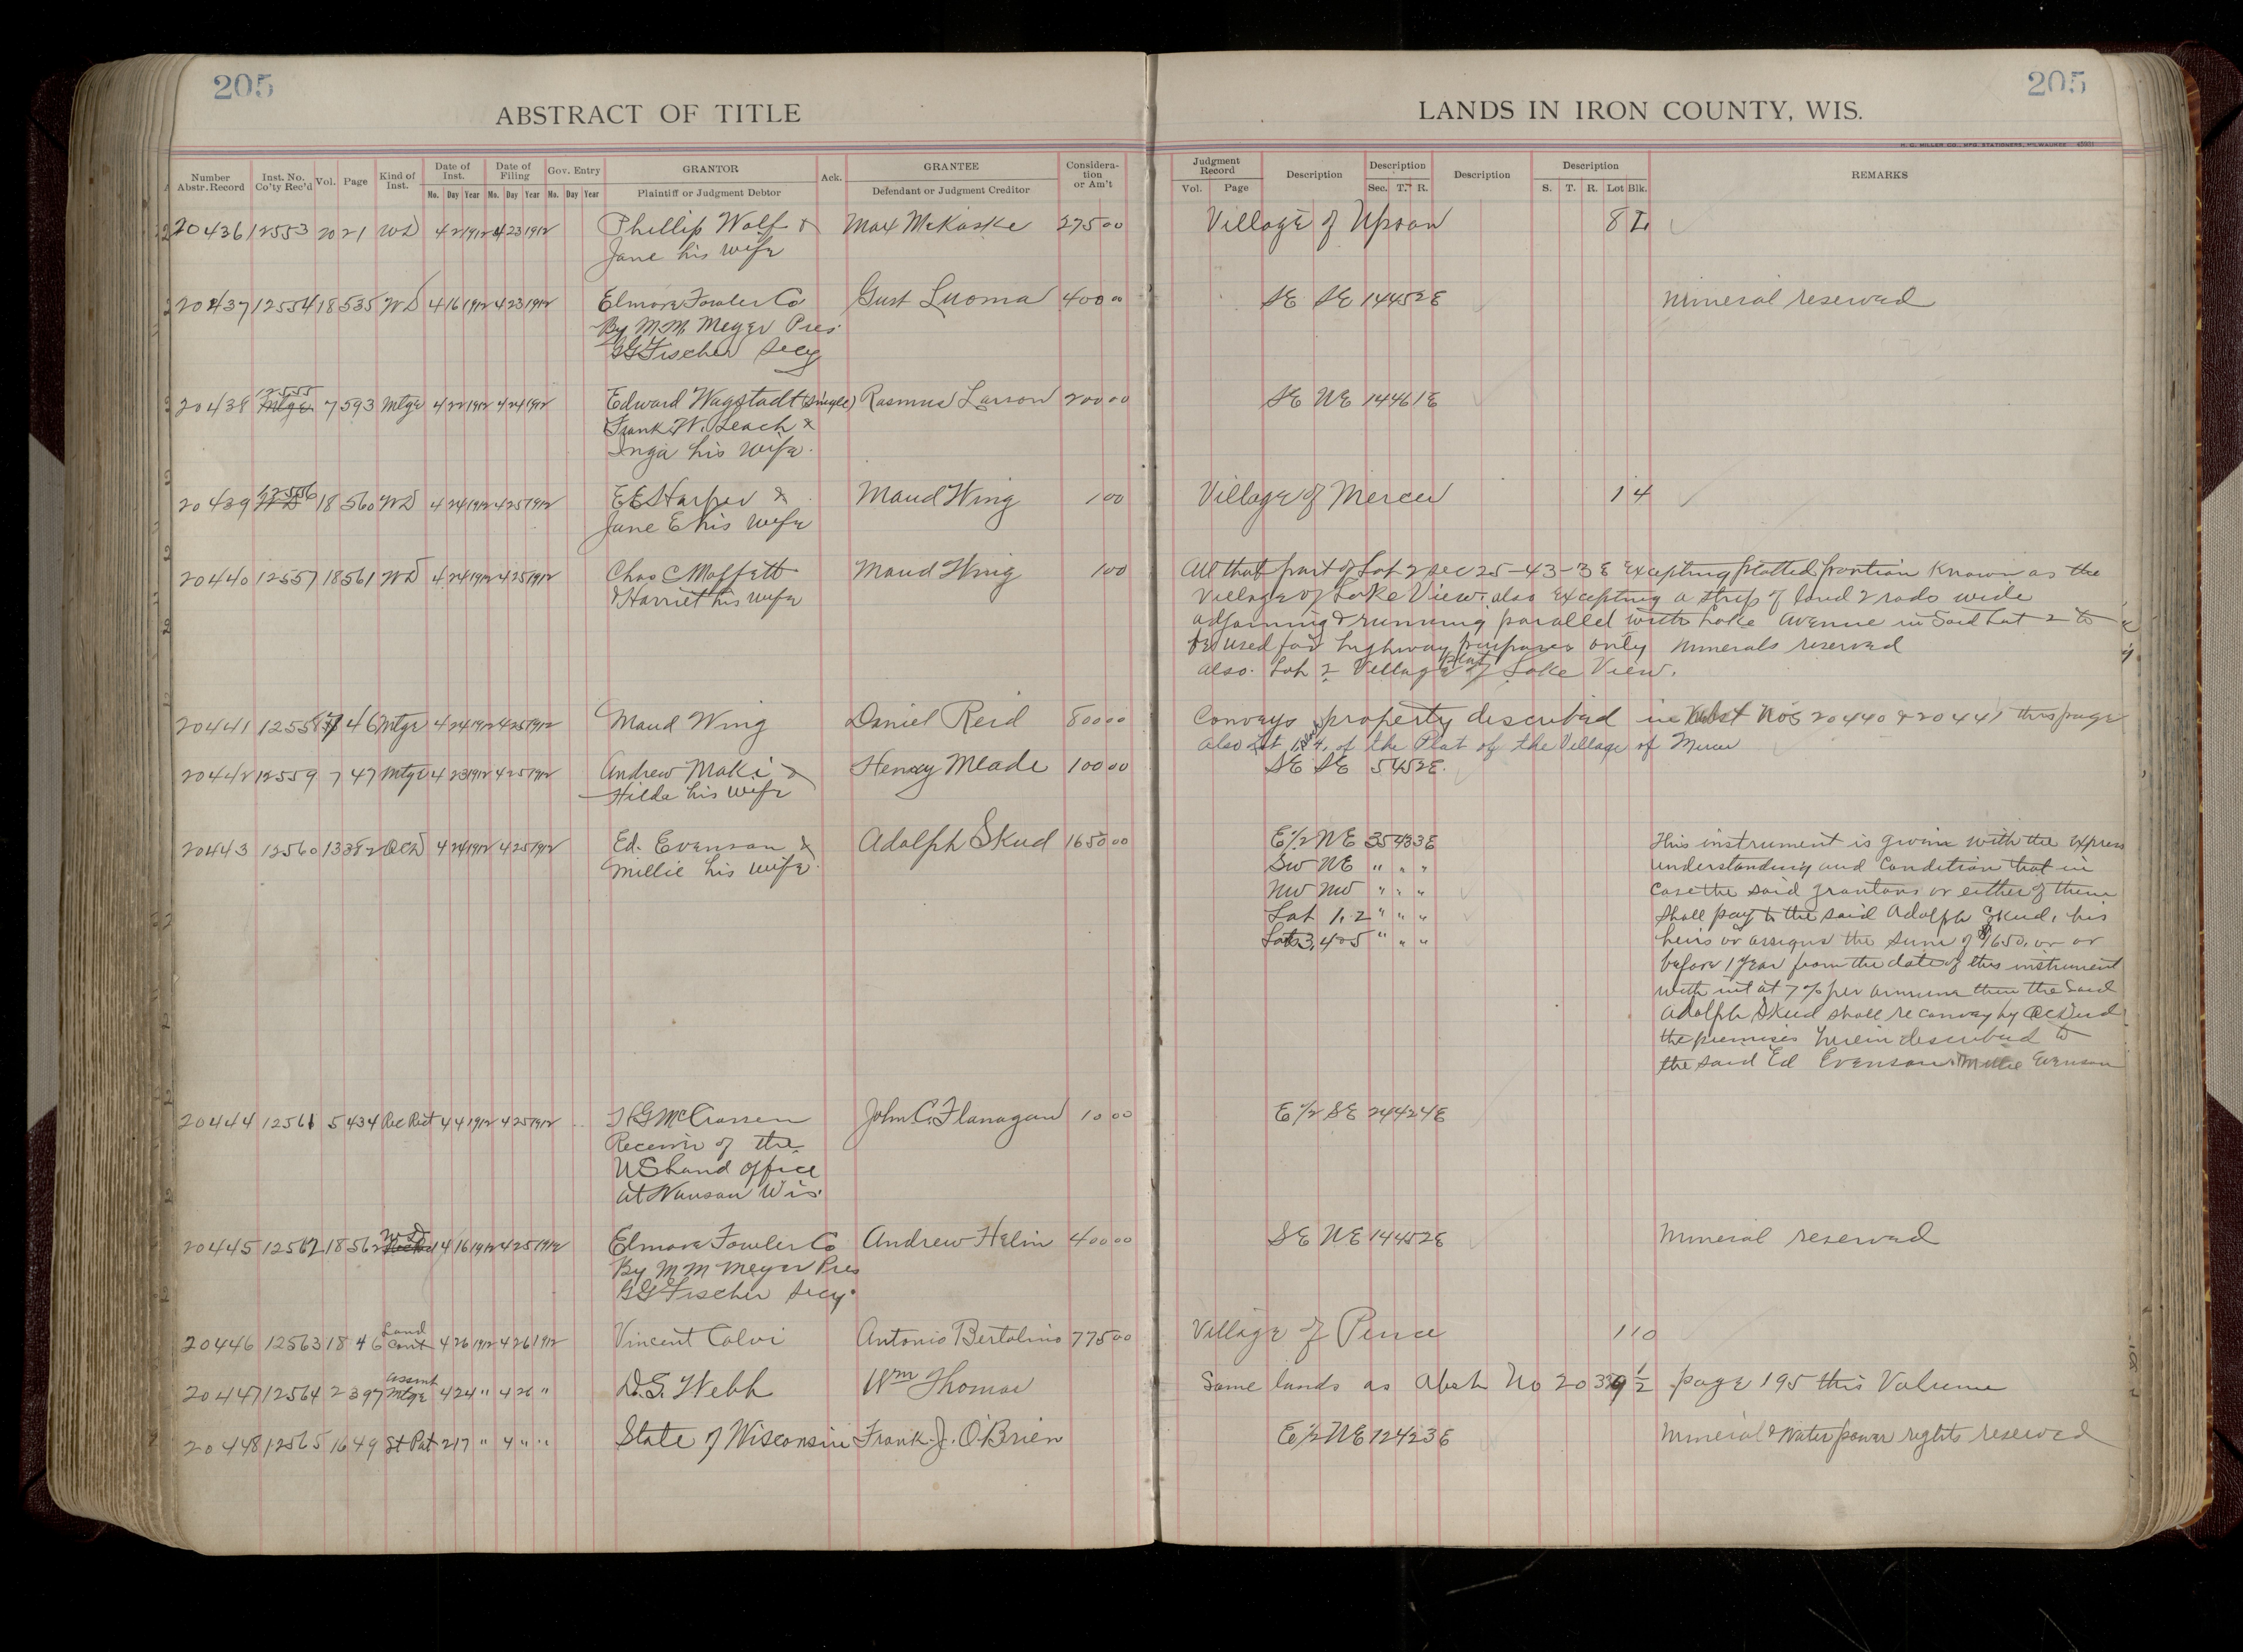 205
205
ABSTRACT OF TITLE
LANDS IN IRON COUNTY, WIS.
H. G. MILLER CO., MFG. STATIONERS, MILWAUKEE
Number Abstr. Record Inst. No. Co'ty Rec'd Vol. Page Kind of Inst. Date of Inst. Mo. Day Year Date of Filing Mo. Day Year Gov. Entry Mo. Day Year GRANTOR Plaintiff or Judgment Debtor Ack. GRANTEE Defendant or Judgment Creditor Considera-tion or Am't
Judgment Record Vol. Page Description Description Sec. T. R. Description Description S. T. R. Lot Blk. REMARKS
20436 12553 20 21 WD 4 2 1912 4 23 1912 Phillip Wolf & Max McKaske 275 00 Village of Upson 8 L
Jane his wife
20437 12554 18 535 WD 4 16 1912 4 23 1912 Elmore Fowler Co Gust Luoma 400 00 SE SE 14 45 2E Mineral reserved
By M.M. Meyer Pres.
GG Fischer Secy
20438 12555 7 593 Mtge 4 22 1912 4 24 1912 Edward Wagstadt (single) Rasmus Larson 200 00 SE NE 14 46 1E
Frank W. Leach &
Inga his wife.
20439 12556 18 560 WD 4 24 1912 4 25 1912 EE Harper & Maud Wing 1 00 Village of Mercer 1 4
Jane E his wife
20440 12557 18 561 WD 4 24 1912 4 25 1912 Chas C Moffett Maud Wing 1 00 All that part of Lot 2 Sec 25-43-3E Excepting platted portion known as the
& Harriet his wife Village of Lake View. also Excepting a strip of land 2 rods wide
adjoining & running parallel with Lake Avenue in Said Lot 2 to
be used for highway purposes only Minerals reserved
also. Lot 2 Village plat of Lake View.
20441 12558 7 46 Mtge 4 24 1912 4 25 1912 Maud Wing Daniel Reid 800 00 Conveys property described in Abst Nos 20440 & 20441 this page
also Lot 1, Blk 4, of the Plat of the Village of Mercer
20442 12559 7 47 Mtge 4 23 1912 4 25 1912 Andrew Maki & Henry Meade 100 00 SE SE 5 45 2E.
Hilda his wife
20443 12560 13 382 QCD 4 24 1912 4 25 1912 Ed. Evenson & Adolph Skud 1650 00 E 1/2 NE 35 43 3E This instrument is given with the express
Millie his wife. SW NE " " " understanding and Condition that in
NW NW " " " Case the said grantors or either of them
Lot 1, 2 " " " Shall pay to the said Adolph Skud, his
Lots 3, 4 & 5 " " " heirs or assigns the sum of $1650. on or
before 1 year from the date of this instrument
with int at 7% per annum then the Said
Adolph Skud shall reconvey by QC Deed
the premises herein described to
the said Ed Evenson & Millie Evenson
20444 12561 5 434 Rec Rect 4 4 1912 4 25 1912 H G McCrossen John C. Flanagan 10 00 E 1/2 SE 24 42 4E
Receiver of the
US Land Office
at Wausau Wis.
20445 12562 18 562 WD 4 16 1912 4 25 1912 Elmore Fowler Co Andrew Helin 400 00 SE NE 14 45 2E Mineral reserved
By M M Meyer Pres
GG Fischer Secy.
20446 12563 18 46 Land Cont 4 26 1912 4 26 1912 Vincent Calvi Antonio Bertolino 775 00 Village of Pence 1 10
20447 12564 2 397 Assmt Mtge 4 24 " 4 26 " D.S. Webb Wm Thomas Same lands as Abst No 20 339 1/2 page 195 this Volume
20448 12565 16 49 St Pat 2 17 " 4 " " State of Wisconsin Frank J. O'Brien E 1/2 NE 12 42 3E Mineral & Water power rights reserved